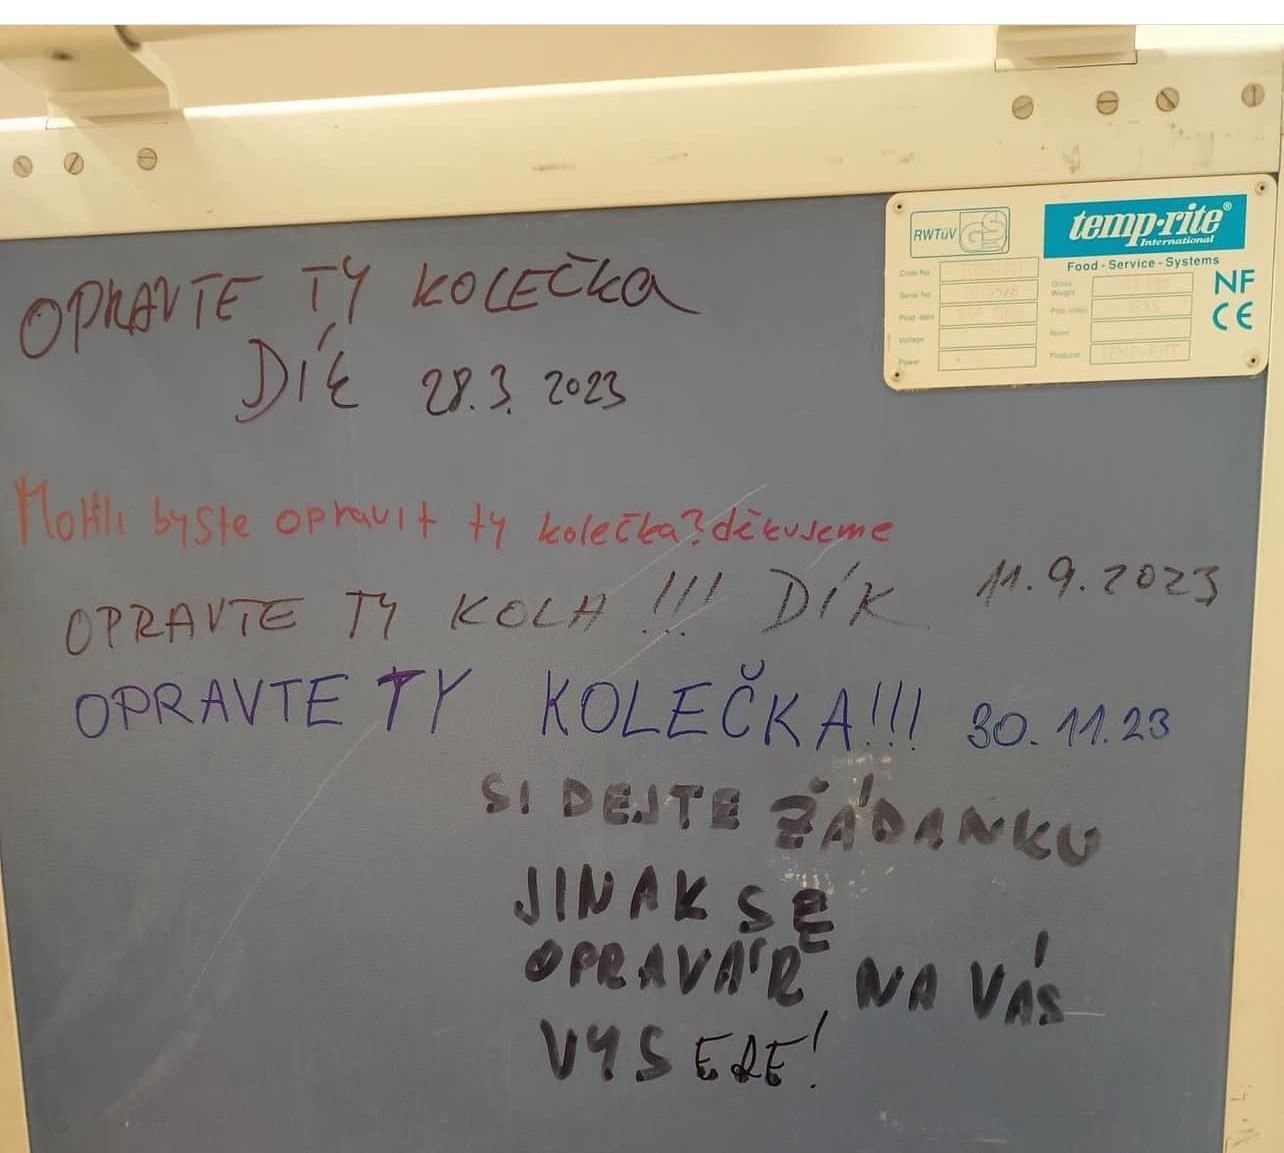 OPRAVTE TY KOLEČKA
DÍK 28.3. 2023
RWTüV GS
temp·rite®
International
Food - Service - Systems
NF
CE
Code No.
Serial No.
Prod. date
Voltage
Power
Gross Weight
Norm
Producer TEMP-RITE
MoHli byste opravit ty kolečka? děkujeme
OPRAVTE TY KOLA !!! DÍK 11.9.2023
OPRAVTE TY KOLEČKA!!! 30.11.23
SI DEJTE ŽÁDANKU
JINAK SE
OPRAVÁR NA VÁS
VYSERE!